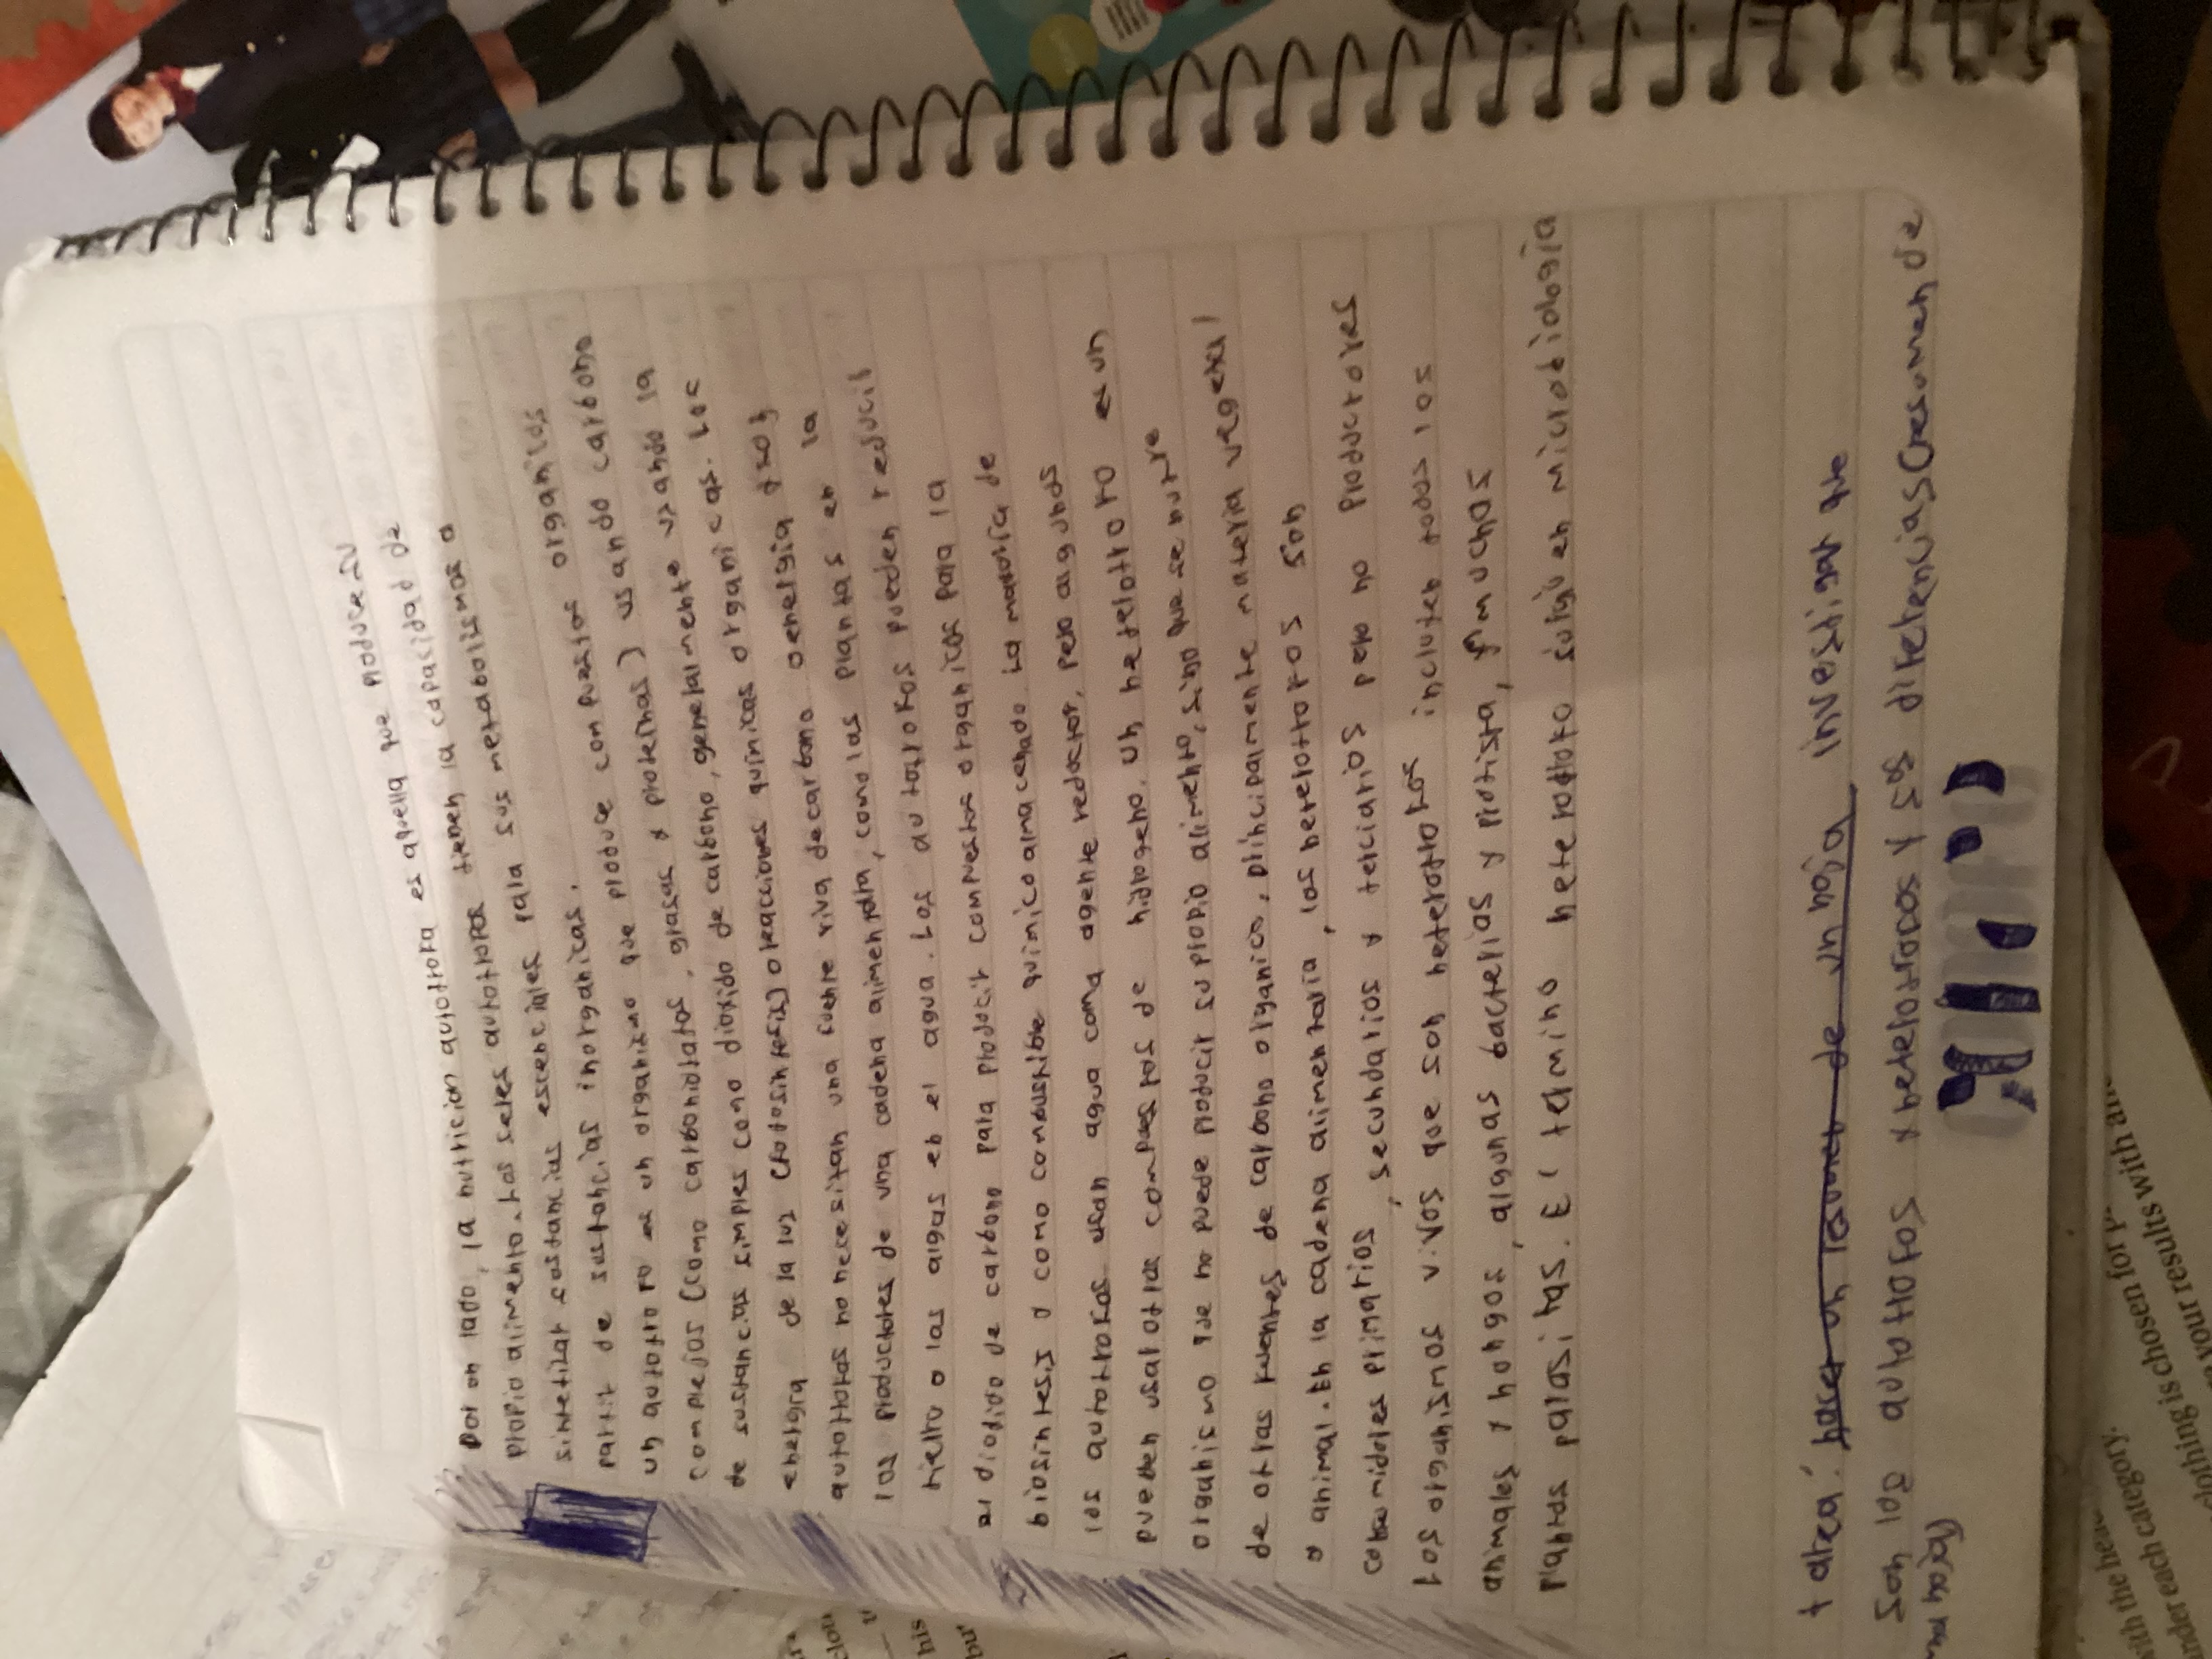 Por un lado, la nutricion autotrofa es aquella que produce su
propio alimento. Los seres autotrofos tienen la capacidad de
sintetizar sustancias escenciales para sus metabolismos a
partir de sustancias inorganicas.
un autotrofo es un organizmo que produce compuestos organicos
complejos (como carbohidratos, grasas y proteinas) usando carbono
de sustancias simples como dioxido de carbono, generalmente usando la
energia de la luz (fotosintesis) o reacciones quimicas organicas. Los
autotrofos no necesitan una fuente viva de carbono o energia y son
los productores de una cadena alimentaria, como las plantas en la
tierra o las algas en el agua. Los autotrofos pueden reducir
el dioxido de carbono para producir compuestos organicos para la
biosintesis y como combustible quimico almacenado. La mayoria de
los autotrofos usan agua como agente reductor, pero algunos
pueden usar otros compuestos de hidrogeno. un heterotrofo es un
organismo que no puede producir su propio alimento, sino que se nutre
de otras fuentes de carbono organico, principalmente materia vegetal
o animal. En la cadena alimentaria, los heterotrofos son
consumidores primarios, secundarios y terciarios pero no productores
Los organismos vivos que son heterotrofos incluyen todos los
animales y hongos, algunas bacterias y protista, y muchas
plantas parasitas. El termino heterotrofo surgio en microbiologia
tarea: hacer un resumen de un hoja investigar que
son los autotrofos y heterotrofos y sus diferencias (resumen de
una hoja)
with the hea
nder each category.
lothing is chosen for p
e your results with an